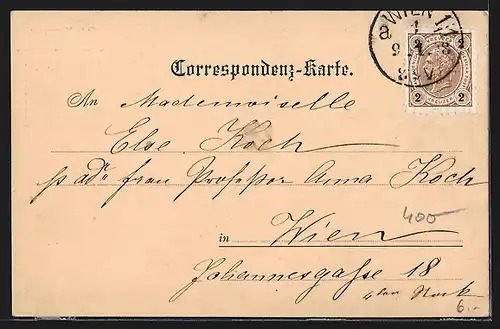 WIEN 1/1
Correspondenz-Karte.
An Mademoiselle
2 2
KREUZER
Else Koch
p adr frau Professor Anna Koch
400
in Wien
Johannesgasse 18
4ten Stock
6.-